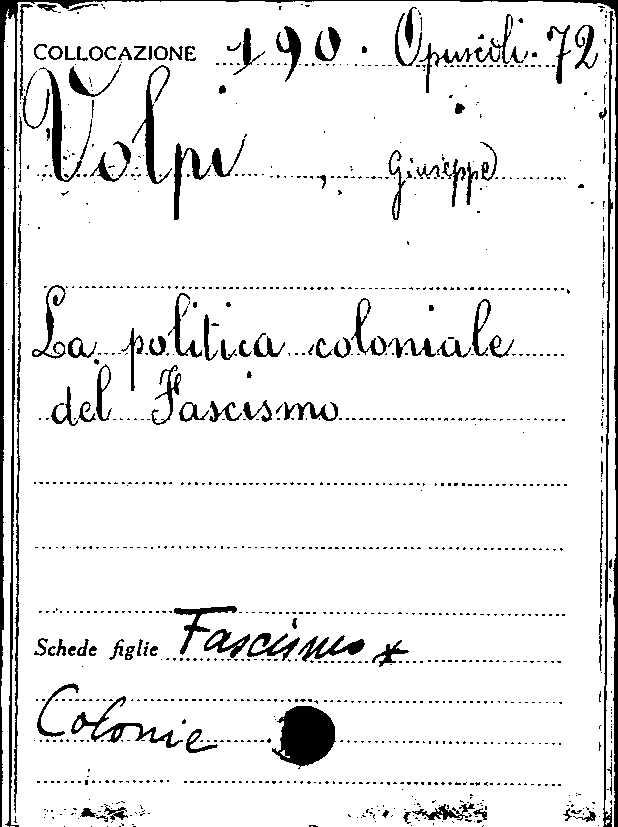 COLLOCAZIONE 190. Opuscoli. 72
Volpi, Giuseppe
La politica coloniale
del Fascismo
Schede figlie Fascismo x
Colonie